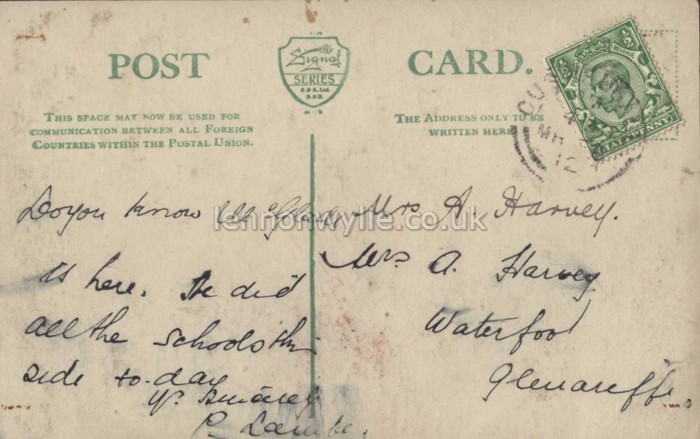 POST
CARD.
Signal
SERIES
THIS SPACE MAY NOW BE USED FOR
COMMUNICATION BETWEEN ALL FOREIGN
COUNTRIES WITHIN THE POSTAL UNION.
THE ADDRESS ONLY TO BE
WRITTEN HERE
HALFPENNY
MR
12
lennonwylie.co.uk
Do you know
is here. He did
all the schools this
side to-day
Mrs A. Harvey.
Mrs A. Harvey
Waterfoot
Glenariffe.